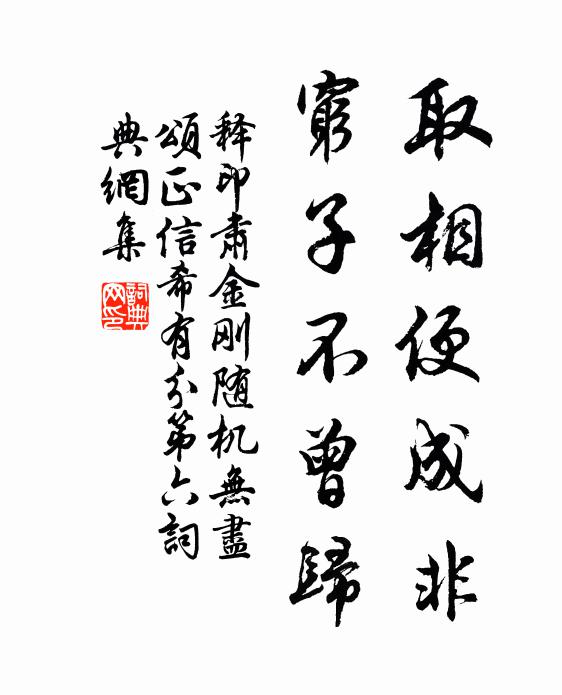 取相便成非
窮子不曾歸
释印肃金刚随机無盡
頌正信希有分第六詞
典網集
詞典网印